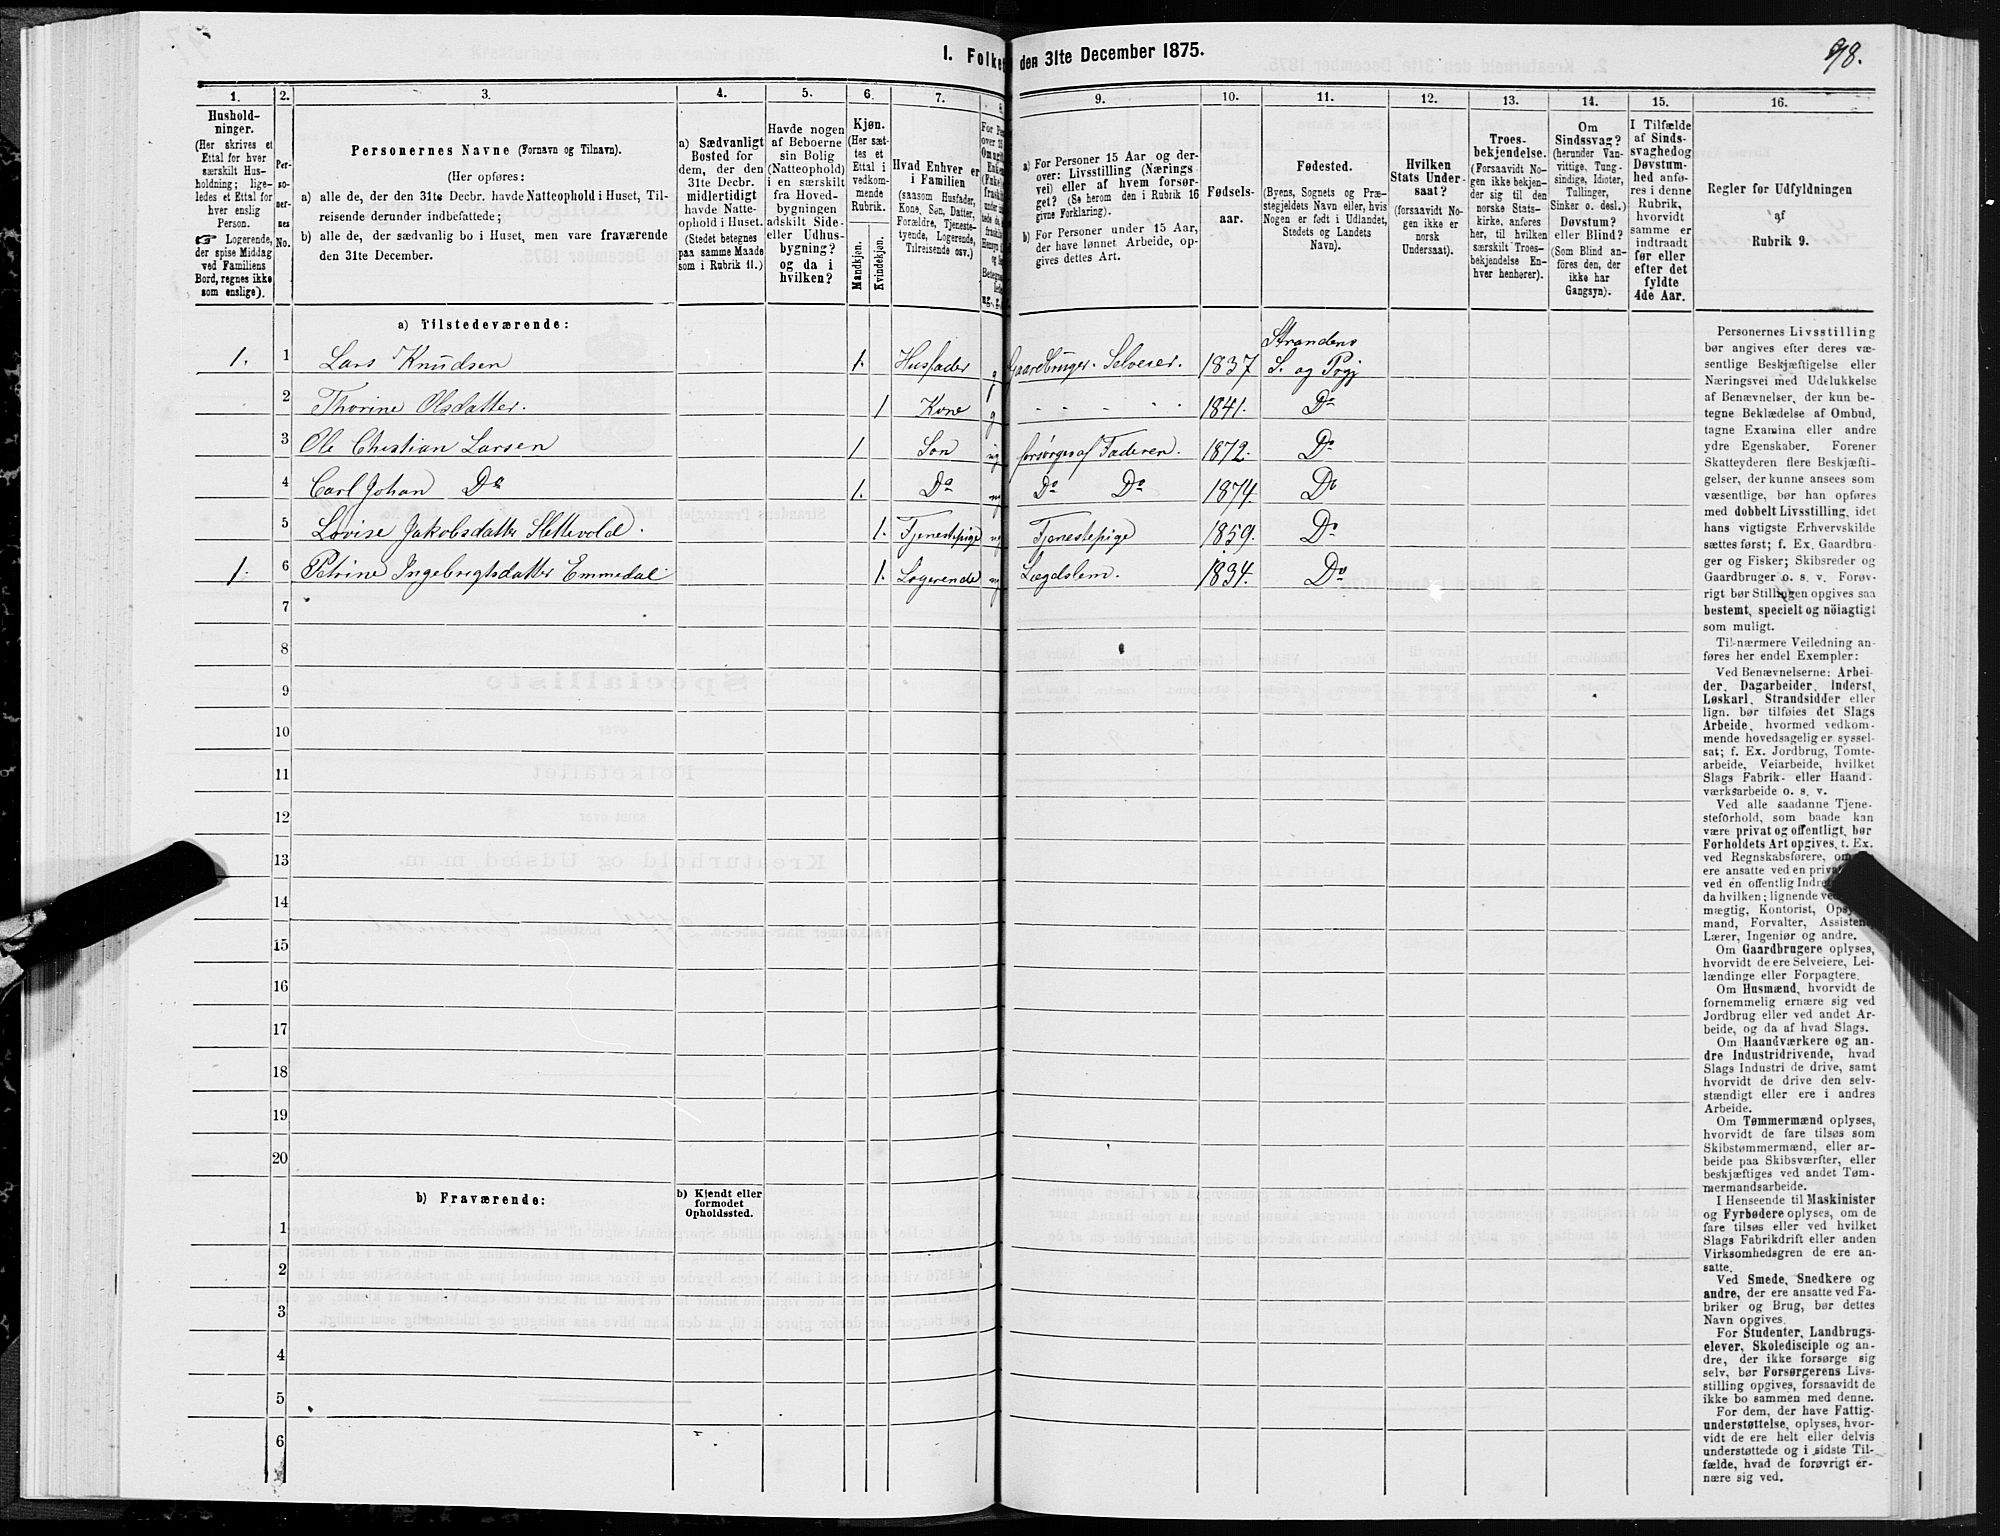 I. Folket
den 31te December 1875.
98.
1.
2.
3.
4.
5.
6.
7.
8.
9.
10.
11.
12.
13.
14.
15.
16.
Hushold-
ninger.
(Her skrives et
Ettal for hver
særskilt Hus-
holdning; lige-
ledes et Ettal for
hver enslig
Person.
☞ Logerende,
der spise Middag
ved Familiens
Bord, regnes ikke
som enslige).
Per-
so-
ner-
nes
No.
Personernes Navne (Fornavn og Tilnavn).
(Her opføres:
a) alle de, der den 31te Decbr. havde Natteophold i Huset, Til-
reisende derunder indbefattede;
b) alle de, der sædvanlig bo i Huset, men vare fraværende
den 31te December.
a) Sædvanligt
Bosted for
dem, der den
31te Decbr.
midlertidigt
havde Natte-
ophold i Huset.
(Stedet betegnes
paa samme Maade
som i Rubrik 11.)
Havde nogen
af Beboerne
sin Bolig
(Natteophold)
i en særskilt
fra Hoved-
bygningen
adskilt Side-
eller Udhus-
bygning?
og da i
hvilken?
Kjøn.
(Her sæt-
tes et
Ettal i
vedkom-
mende
Rubrik.
Mandkjøn.
Kvindekjøn.
Hvad Enhver er
i Familien
(saasom Husfader,
Kone, Søn, Datter,
Forældre, Tjeneste-
tyende, Logerende,
Tilreisende osv.)
a) For Personer 15 Aar og der-
over: Livsstilling (Nærings
vei) eller af hvem forsør-
get? (Se herom den i Rubrik 16
givne Forklaring).
b) For Personer under 15 Aar,
der have lønnet Arbeide, op-
gives dettes Art.
Fødsels-
aar.
Fødested.
(Byens, Sognets og Præ-
stegjeldets Navn eller, hvis
Nogen er født i Udlandet,
Stedets og Landets
Navn).
Hvilken
Stats Under-
saat?
(forsaavidt No-
gen ikke er
norsk
Undersaat).
Troes-
bekjendelse.
(Forsaavidt No-
gen ikke bekjen-
der sig til den
norske Stats-
kirke, anføres
her, til hvilken
særskilt Troes-
bekjendelse En-
hver henhører).
Om
Sindssvag?
(herunder Van-
vittige, Tung-
sindige, Idioter,
Tullinger,
Sinker o. desl.)
Døvstum?
eller Blind?
(Som Blind an-
føres den, der
ikke har
Gangsyn).
I Tilfælde
af Sinds-
svaghedog
Døvstum-
hed anfø-
res i denne
Rubrik,
hvorvidt
samme er
indtraadt
før eller
efter det
fyldte
4de Aar.
Regler for Udfyldningen
af
Rubrik 9.
a) Tilstedeværende:
1. 1 Lars Knudsen 1. Husfader g Gaardbruger. Selveier. 1837 Strandens S. og Prgj
2 Thorine Olsdatter. 1 Kone g " " " " 1841. Do
3 Ole Christian Larsen 1 Søn ug forsørges af Faderen. 1872. Do
4 Carl Johan Do 1. Do ug Do Do 1874. Do
5 Lovise Jakobsdatter Slettevold. 1. Tjenestepige ug Tjenestepige 1859. Do
1. 6 Petrine Ingebrigtsdatter Emmedal 1. Logerende ug Lægdslem. 1834. Do
7
8
9
10
11
12
13
14
15
16
17
18
19
20
b) Fraværende:
b) Kjendt eller
formodet
Opholdssted.
1
2
3
4
5
6
Personernes Livsstilling
bør angives efter deres væ-
sentlige Beskjæftigelse eller
Næringsvei med Udelukkelse
af Benævnelser, der kun be-
tegne Beklædelse af Ombud,
tagne Examina eller andre
ydre Egenskaber. Forener
Skatteyderen flere Beskjæfti-
gelser, der kunne ansees som
væsentlige, bør han opføres
med dobbelt Livsstilling, idet
hans vigtigste Erhvervskilde
sættes først; f. Ex. Gaardbru-
ger og Fisker; Skibsreder og
Gaardbruger o. s. v. Forøv-
rigt bør Stillingen opgives saa
bestemt, specielt og nöiagtigt
som muligt.
Til nærmere Veiledning an-
føres her endel Exempler:
Ved Benævnelserne: Arbei-
der, Dagarbeider, Inderst,
Løskarl, Strandsidder eller
lign. bør tilføies det Slags
Arbeide, hvormed vedkom-
mende hovedsagelig er syssel-
sat; f. Ex. Jordbrug, Tomte-
arbeide, Veiarbeide, hvilket
Slags Fabrik- eller Haand-
værksarbeide o. s. v.
Ved alle saadanne Tjene-
steforhold, som baade kan
være privat og offentligt, bør
Forholdets Art opgives, t. Ex.
ved Regnskabsførere, om
ere ansatte ved en privat
ved en offentlig Indret
da hvilken; lignende ved
mægtig, Kontorist, Opsy
mand, Forvalter, Assistent,
Lærer, Ingeniør og andre.
Om Gaardbrugere oplyses,
hvorvidt de ere Selveiere, Lei-
lændinge eller Forpagtere.
Om Husmænd, hvorvidt de
fornemmelig ernære sig ved
Jordbrug eller ved andet Ar-
beide, og da af hvad Slags.
Om Haandværkere og an-
dre Industridrivende, hvad
Slags Industri de drive, samt
hvorvidt de drive den selv-
stændigt eller ere i andres
Arbeide.
Om Tømmermænd oplyses,
hvorvidt de fare tilsøs som
Skibstømmermænd, eller ar-
beide paa Skibsværfter, eller
beskjæftiges ved andet Tøm-
mermandsarbeide.
I Henseende til Maskinister
og Fyrbødere oplyses, om de
fare tilsøs eller ved hvilket
Slags Fabrikdrift eller anden
Virksomhedsgren de ere an-
satte.
Ved Smede, Snedkere og
andre, der ere ansatte ved Fa-
briker og Brug, bør dettes
Navn opgives.
For Studenter, Landbrugs-
elever, Skoledisciple og an-
dre, der ikke forsørge sig
selv, bør Forsørgerens Livs-
stilling opgives, forsaavidt de
ikke bo sammen med denne.
For dem, der have Fattig-
understøttelse, oplyses, hvor-
vidt de ere helt eller delvis
understøttede og i sidste Til-
fælde, hvad de forøvrigt er-
nære sig ved.